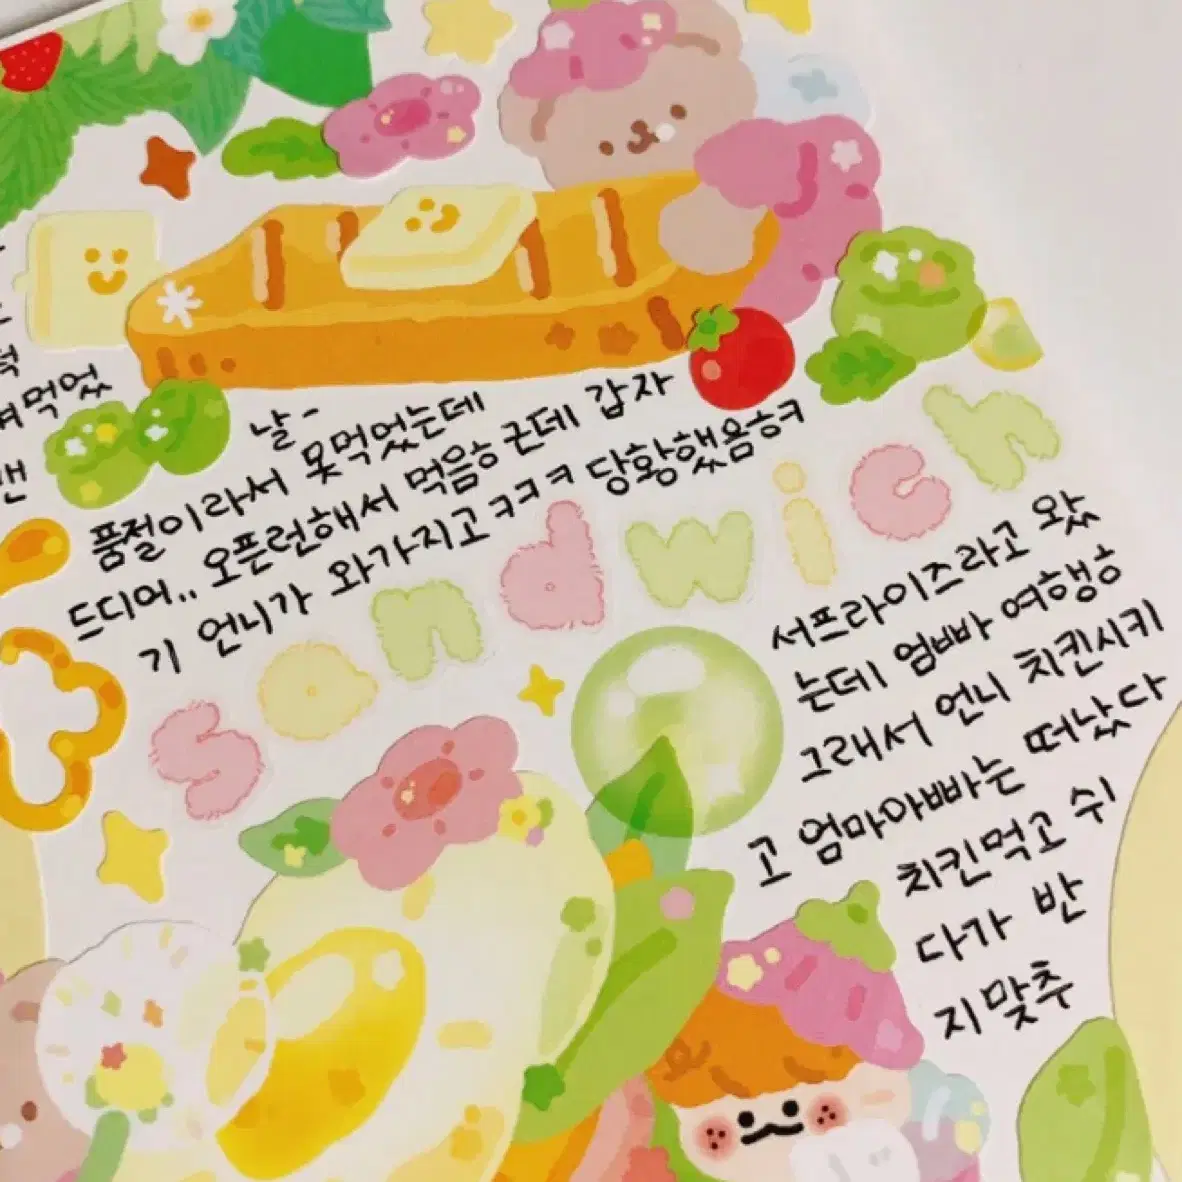 먹었
날-
품절이라서 못먹었는데
드디어.. 오픈런해서 먹음ㅎ 근데 갑자
기 언니가 와가지고 ㅋㅋㅋ 당황했음ㅎㅋ
sandwich
서프라이즈라고 왔
는데 엄빠 여행ㅎ
그래서 언니 치킨시키
고 엄마아빠는 떠났다
치킨먹고 쉬
다가 반
지맞추